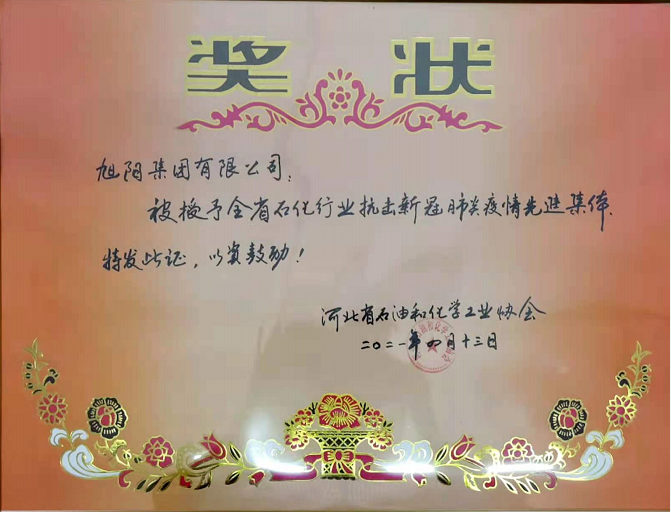 奖状
旭阳集团有限公司：
被授予全省石化行业抗击新冠肺炎疫情先进集体，
特发此证，以资鼓励！
河北省石油和化学工业协会
二〇二一年四月十三日